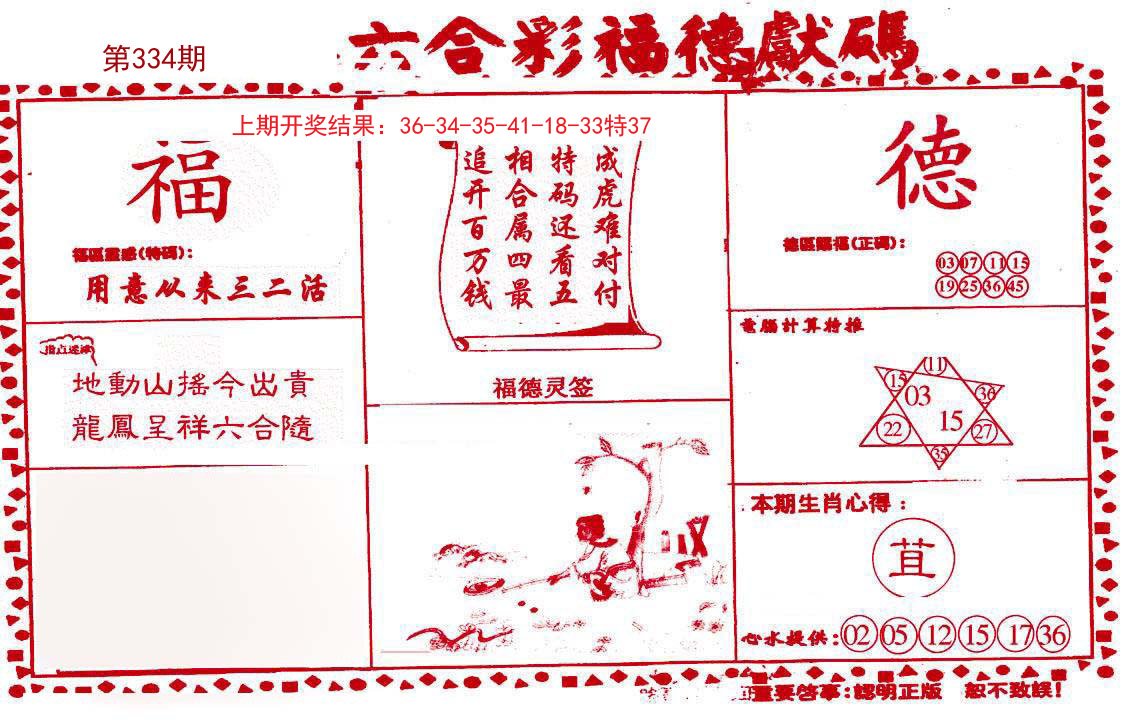 第334期
六合彩福德獻碼
上期开奖结果：36-34-35-41-18-33特37
福
福區靈感(特碼)：
用意从来三二活
指点迷津
地動山搖今出貴
龍鳳呈祥六合隨
成虎难对付
特码还看五
相合属四最
追开百万钱
福德灵签
德
德區賜福(正碼)：
03 07 11 15
19 25 36 45
電腦計算特推
11
15 36
03
15
22 27
35
本期生肖心得：
苴
心水提供：02 05 12 15 17 36
重要啓事：認明正版 恕不致誤！